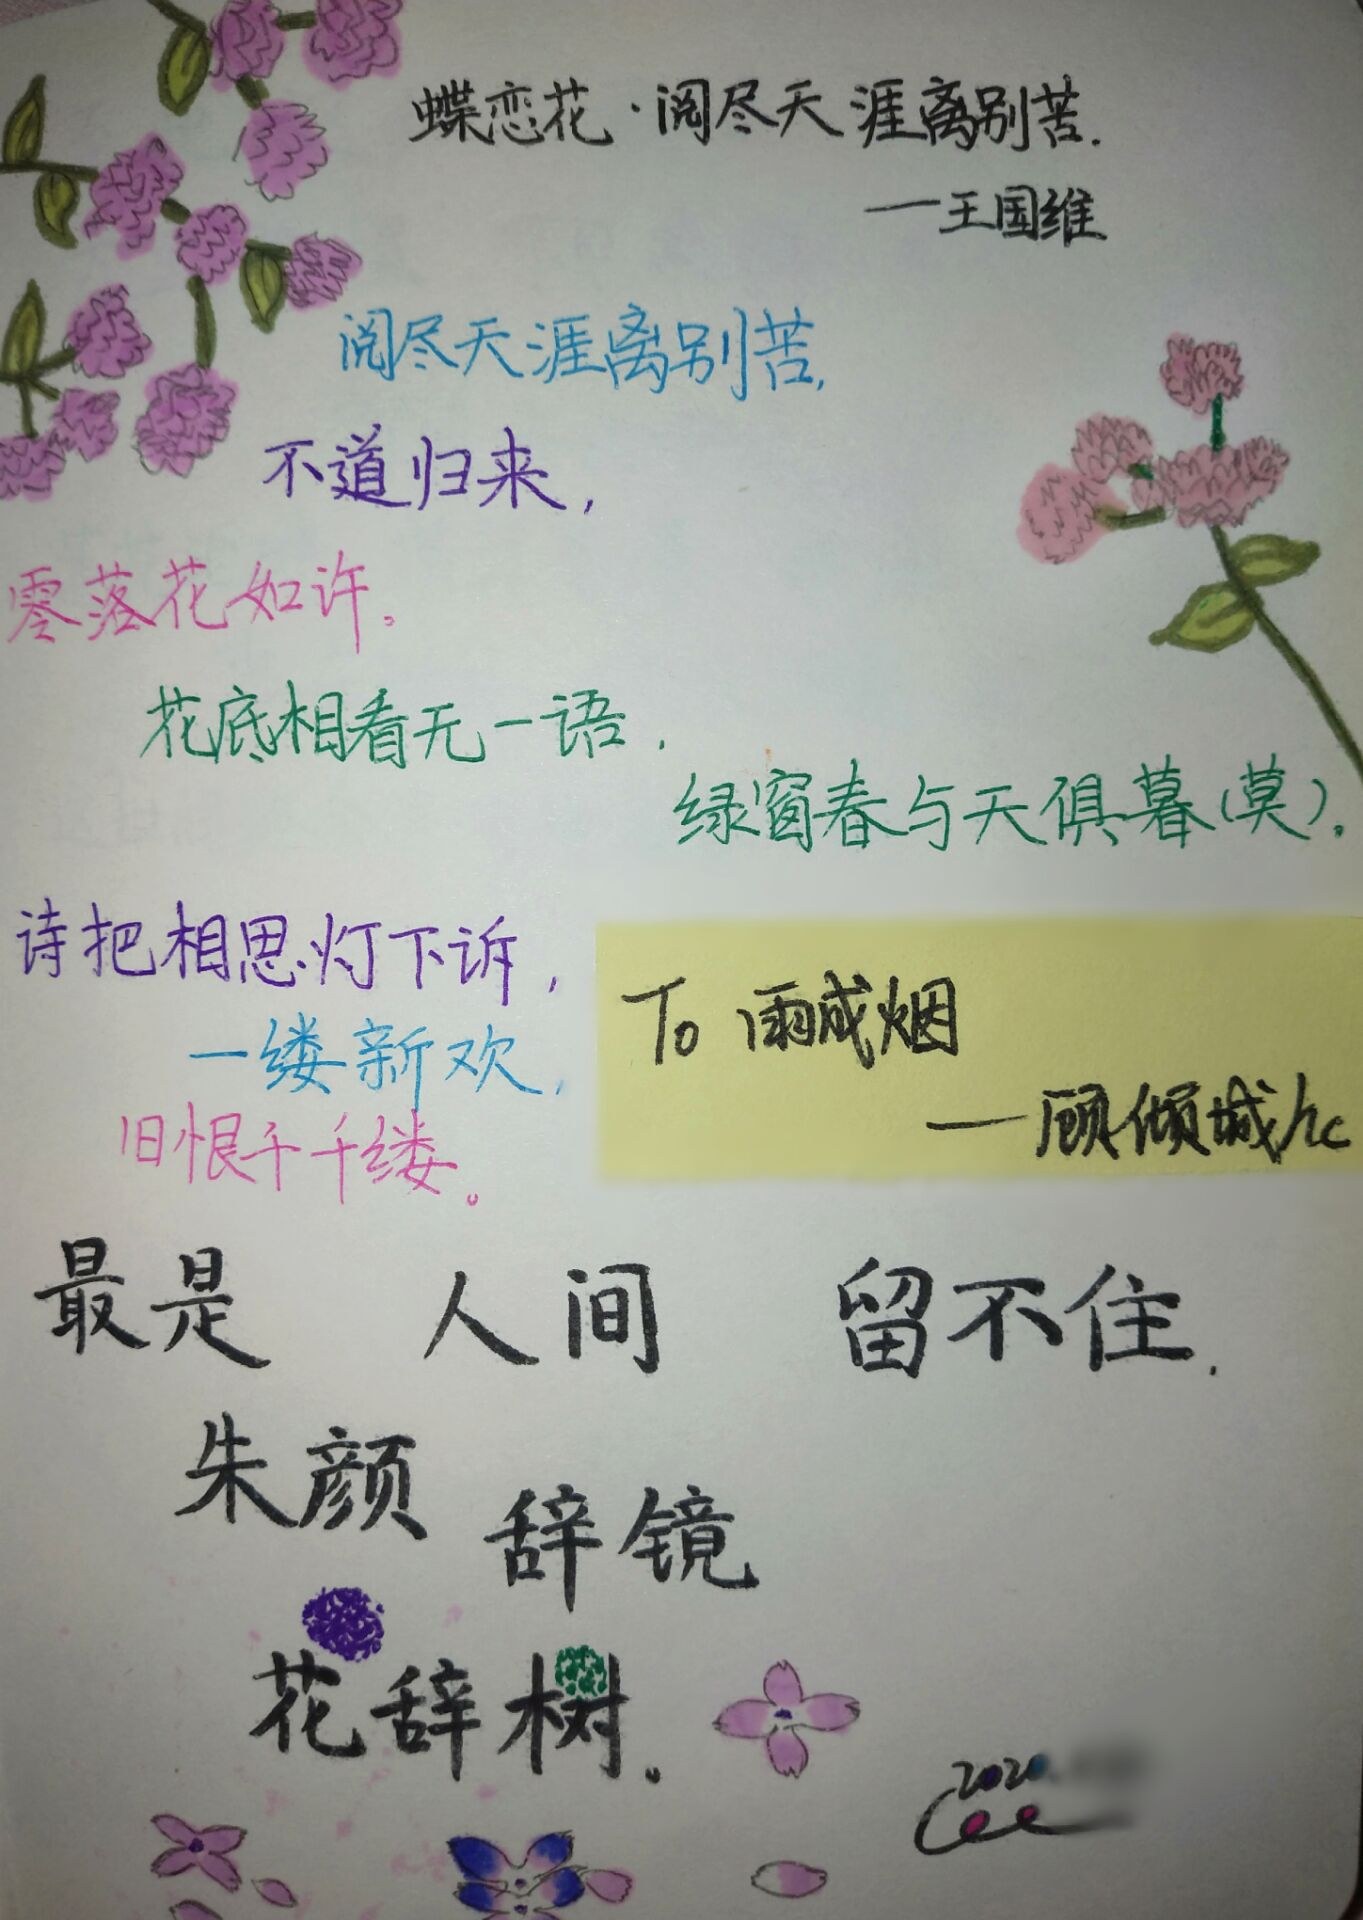 蝶恋花·阅尽天涯离别苦.
——王国维
阅尽天涯离别苦,
不道归来,
零落花如许。
花底相看无一语,
绿窗春与天俱暮(莫)。
诗把相思灯下诉,
一缕新欢,
旧恨千千缕。
To 雨成烟
——顾倾城hc
最是 人间 留不住.
朱颜 辞镜
花辞树.
2020.